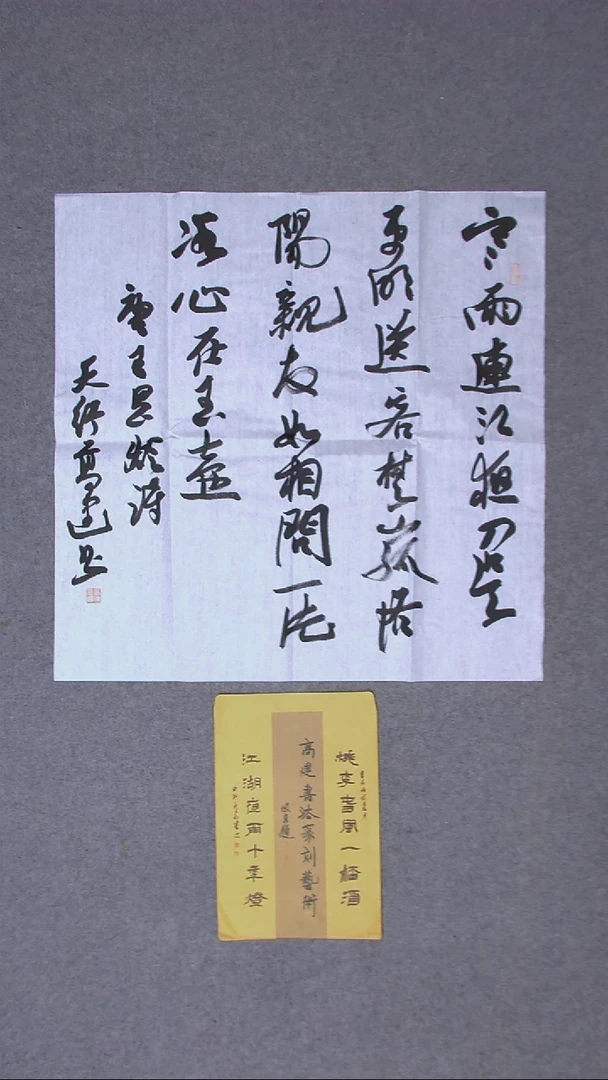 寒雨連江夜入吳
平明送客楚山孤洛
陽親友如相問一片
冰心在玉壺
唐王昌齡詩
高建書
桃李春風一杯酒
高建書法篆刻藝術
江湖夜雨十年燈